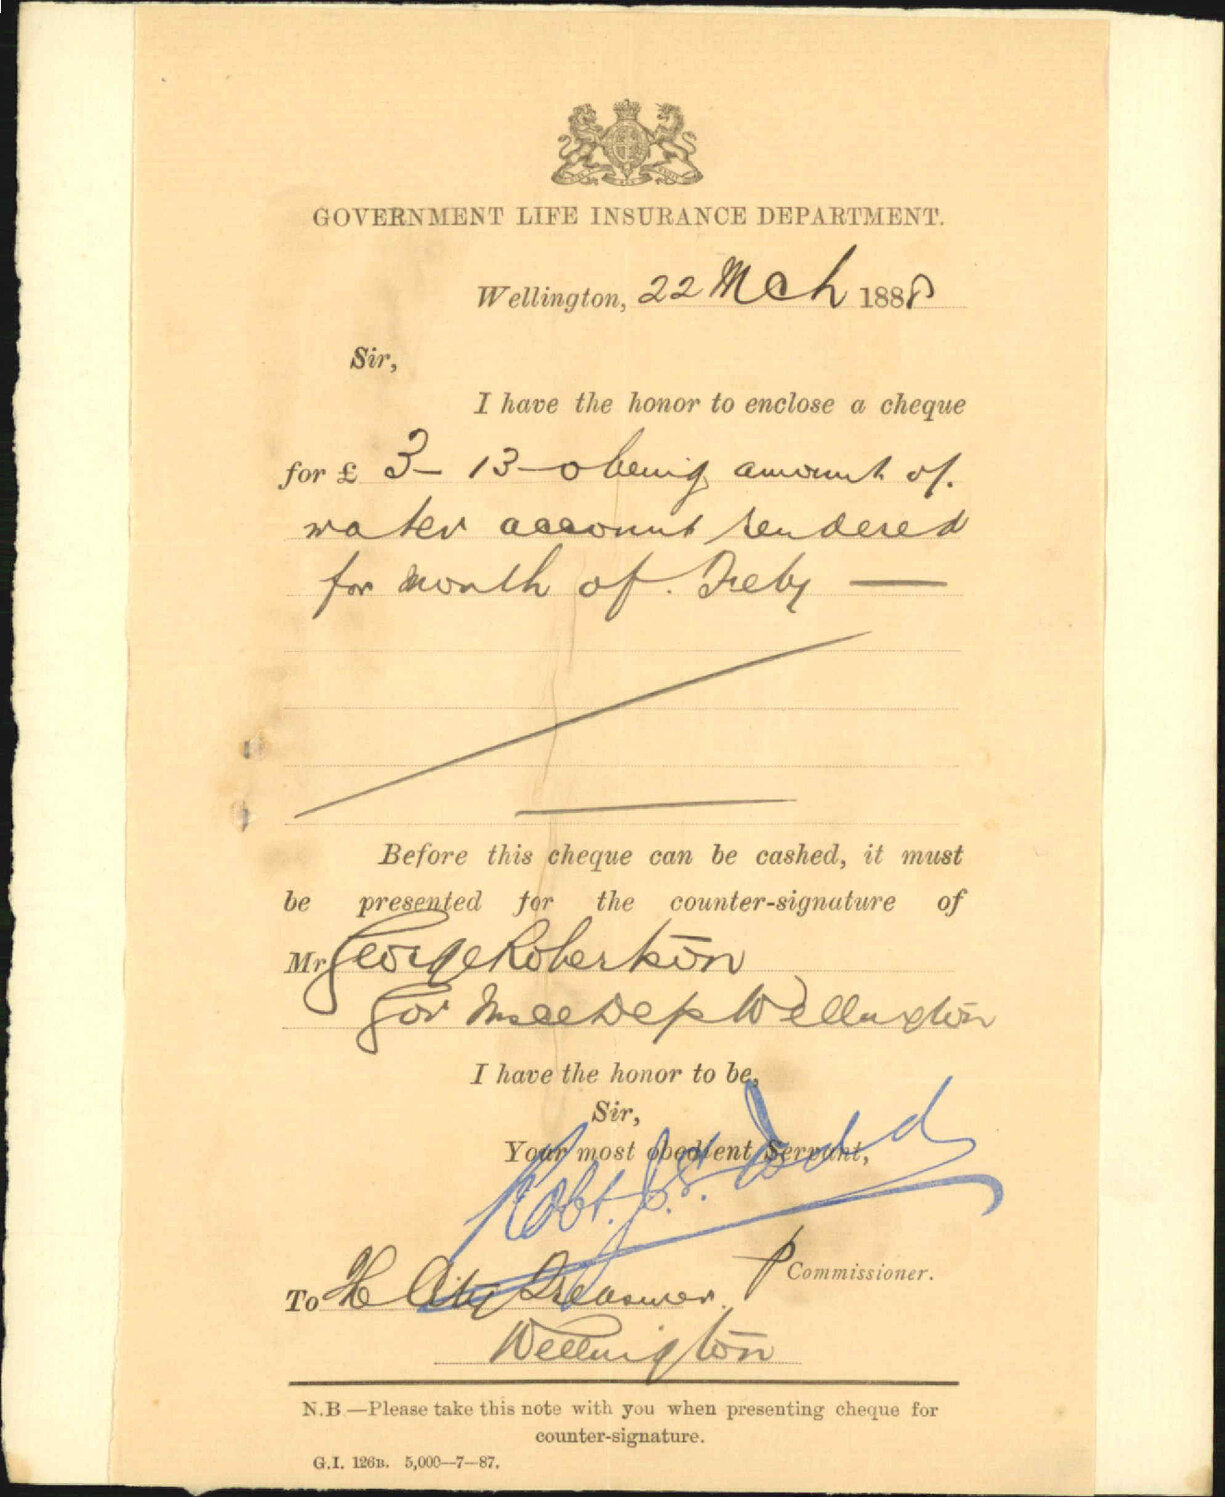 GOVERNMENT LIFE INSURANCE DEPARTMENT.
Wellington, 22 Mch 1888
Sir,
I have the honor to enclose a cheque
for £ 3 - 13 - 0 being amount of
water account rendered
for month of Feby —
Before this cheque can be cashed, it must
be presented for the counter-signature of
Mr George Robertson
Gov Insce Dep Wellington
I have the honor to be,
Sir,
Your most obedient Servant,
Robt. J. S. Todd
p Commissioner.
To The City Treasurer.
Wellington
N.B.—Please take this note with you when presenting cheque for
counter-signature.
G.I. 126B. 5,000—7—87.